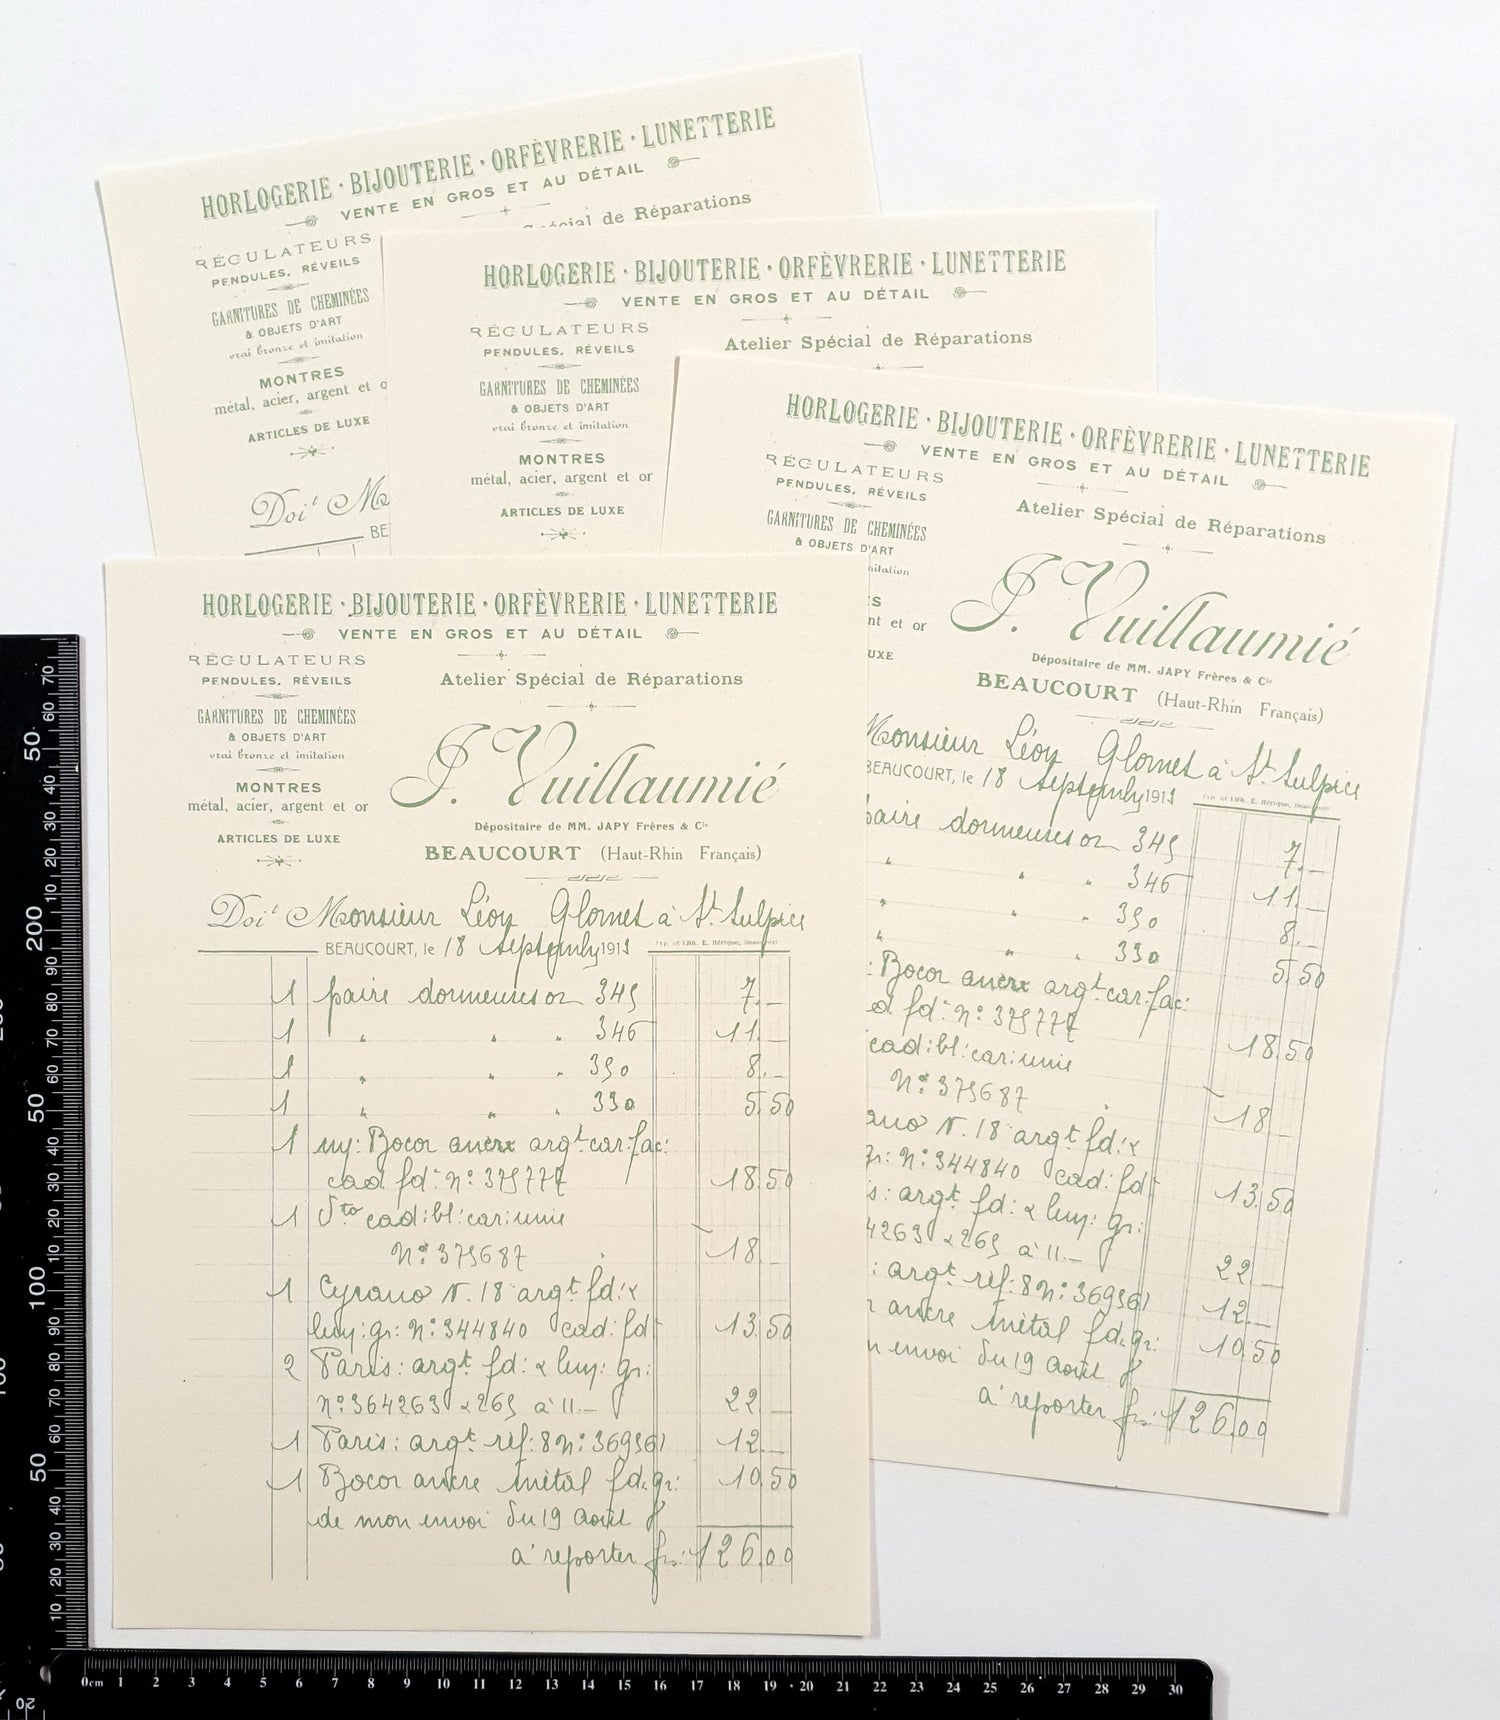 HORLOGERIE · BIJOUTERIE · ORFÈVRERIE · LUNETTERIE
VENTE EN GROS ET AU DÉTAIL
Spécial de Réparations
RÉGULATEURS
PENDULES, RÉVEILS
GARNITURES DE CHEMINÉES
& OBJETS D'ART
vrai bronze et imitation
MONTRES
métal, acier, argent et o
ARTICLES DE LUXE
Doit M
BE
HORLOGERIE · BIJOUTERIE · ORFÈVRERIE · LUNETTERIE
VENTE EN GROS ET AU DÉTAIL
RÉGULATEURS
PENDULES, RÉVEILS
Atelier Spécial de Réparations
GARNITURES DE CHEMINÉES
& OBJETS D'ART
vrai bronze et imitation
MONTRES
métal, acier, argent et or
ARTICLES DE LUXE
HORLOGERIE · BIJOUTERIE · ORFÈVRERIE · LUNETTERIE
VENTE EN GROS ET AU DÉTAIL
RÉGULATEURS
PENDULES, RÉVEILS
Atelier Spécial de Réparations
GARNITURES DE CHEMINÉES
& OBJETS D'ART
imitation
S
nt et or
UXE
J. Vuillaumié
Dépositaire de MM. JAPY Frères & Cie
BEAUCOURT (Haut-Rhin Français)
Monsieur Léon Glornet à St. Sulpice
BEAUCOURT, le 18 Septembre 1911
paire dormeuses or 345 7.—
" " " 346 11.—
" " " 350 8.—
" " " 330 5.50
: Bocor ancre argt. car: fac:
cad. fd: No: 375777 18.50
cad: bl: car: unie
No: 375687 18.—
ano N. 18 argt fd: &
gr: No: 344840 cad: fd: 13.50
s: argt fd: & guy: gr:
4263 & 265 à 11.— 22.—
: argt. réf: 8 No: 36936 12.—
r ancre métal fd. gr: 10.50
n envoi du 19 août
à reporter frs: 126.00
HORLOGERIE · BIJOUTERIE · ORFÈVRERIE · LUNETTERIE
VENTE EN GROS ET AU DÉTAIL
RÉGULATEURS
PENDULES, RÉVEILS
Atelier Spécial de Réparations
GARNITURES DE CHEMINÉES
& OBJETS D'ART
vrai bronze et imitation
MONTRES
métal, acier, argent et or
ARTICLES DE LUXE
J. Vuillaumié
Dépositaire de MM. JAPY Frères & Cie
BEAUCOURT (Haut-Rhin Français)
Doit Monsieur Léon Glornet à St. Sulpice
BEAUCOURT, le 18 Septembre 1911
Typ. et Lith. E. Hérique, Beaucourt
1 paire dormeuses or 345 7.—
1 " " " 346 11.—
1 " " " 350 8.—
1 " " " 330 5.50
1 Bocor ancre argt. car: fac:
cad. fd: No: 375777 18.50
1 dto cad: bl: car: unie
No: 375687 18.—
1 Cyrano N. 18 argt fd: &
gr: No: 344840 cad: fd: 13.50
2 Paris: argt fd: & gr:
No: 364263 & 265 à 11.— 22.—
1 Paris: argt. réf: 8 No: 36936 12.—
1 Bocor ancre métal fd. gr: 10.50
de mon envoi du 19 août
à reporter frs: 126.00
70
60
50
40
30
20
10
200
90
80
70
60
50
40
30
20
10
100
90
80
70
60
50
40
30
20
10
0cm 1 2 3 4 5 6 7 8 9 10 11 12 13 14 15 16 17 18 19 20 21 22 23 24 25 26 27 28 29 30
20